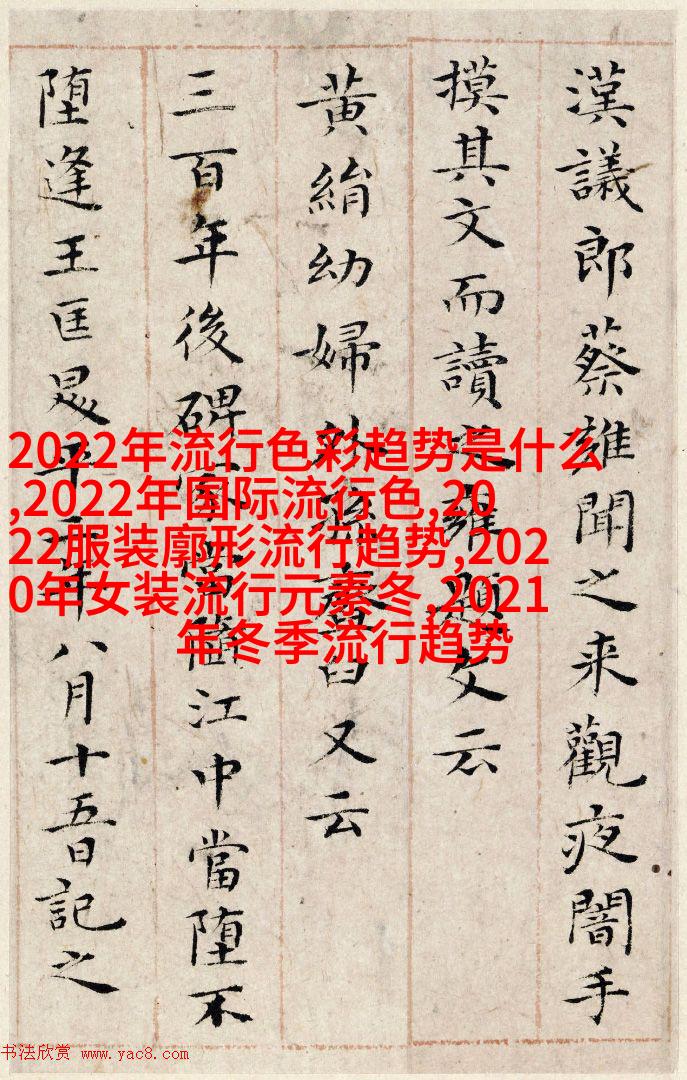 漢議郎蔡雍聞之来觀夜闇手
摸其文而讀之雍題文云
黃絹幼婦外孫臼又云
三百年後碑冢當堕江中當堕不
堕逢王匡昇平二年八月十五日記之
2022年流行色彩趋势是什么
,2022年国际流行色,20
22服装廓形流行趋势,202
0年女装流行元素冬,2021
年冬季流行趋势
书法欣赏 www.yac8.com